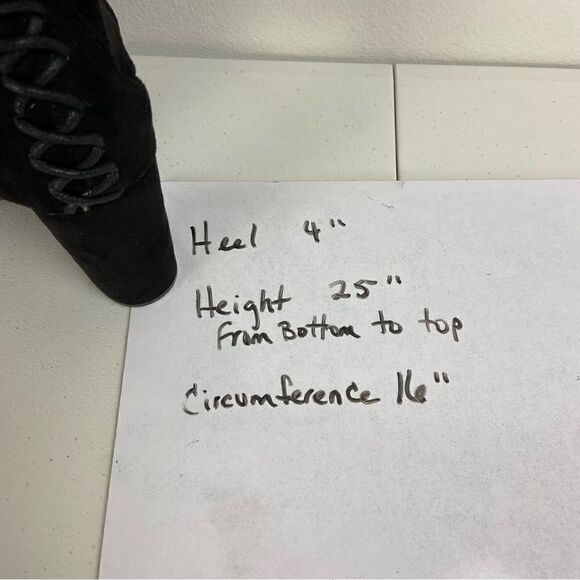 Heel 4"
Height 25"
From Bottom to top
Circumference 16"